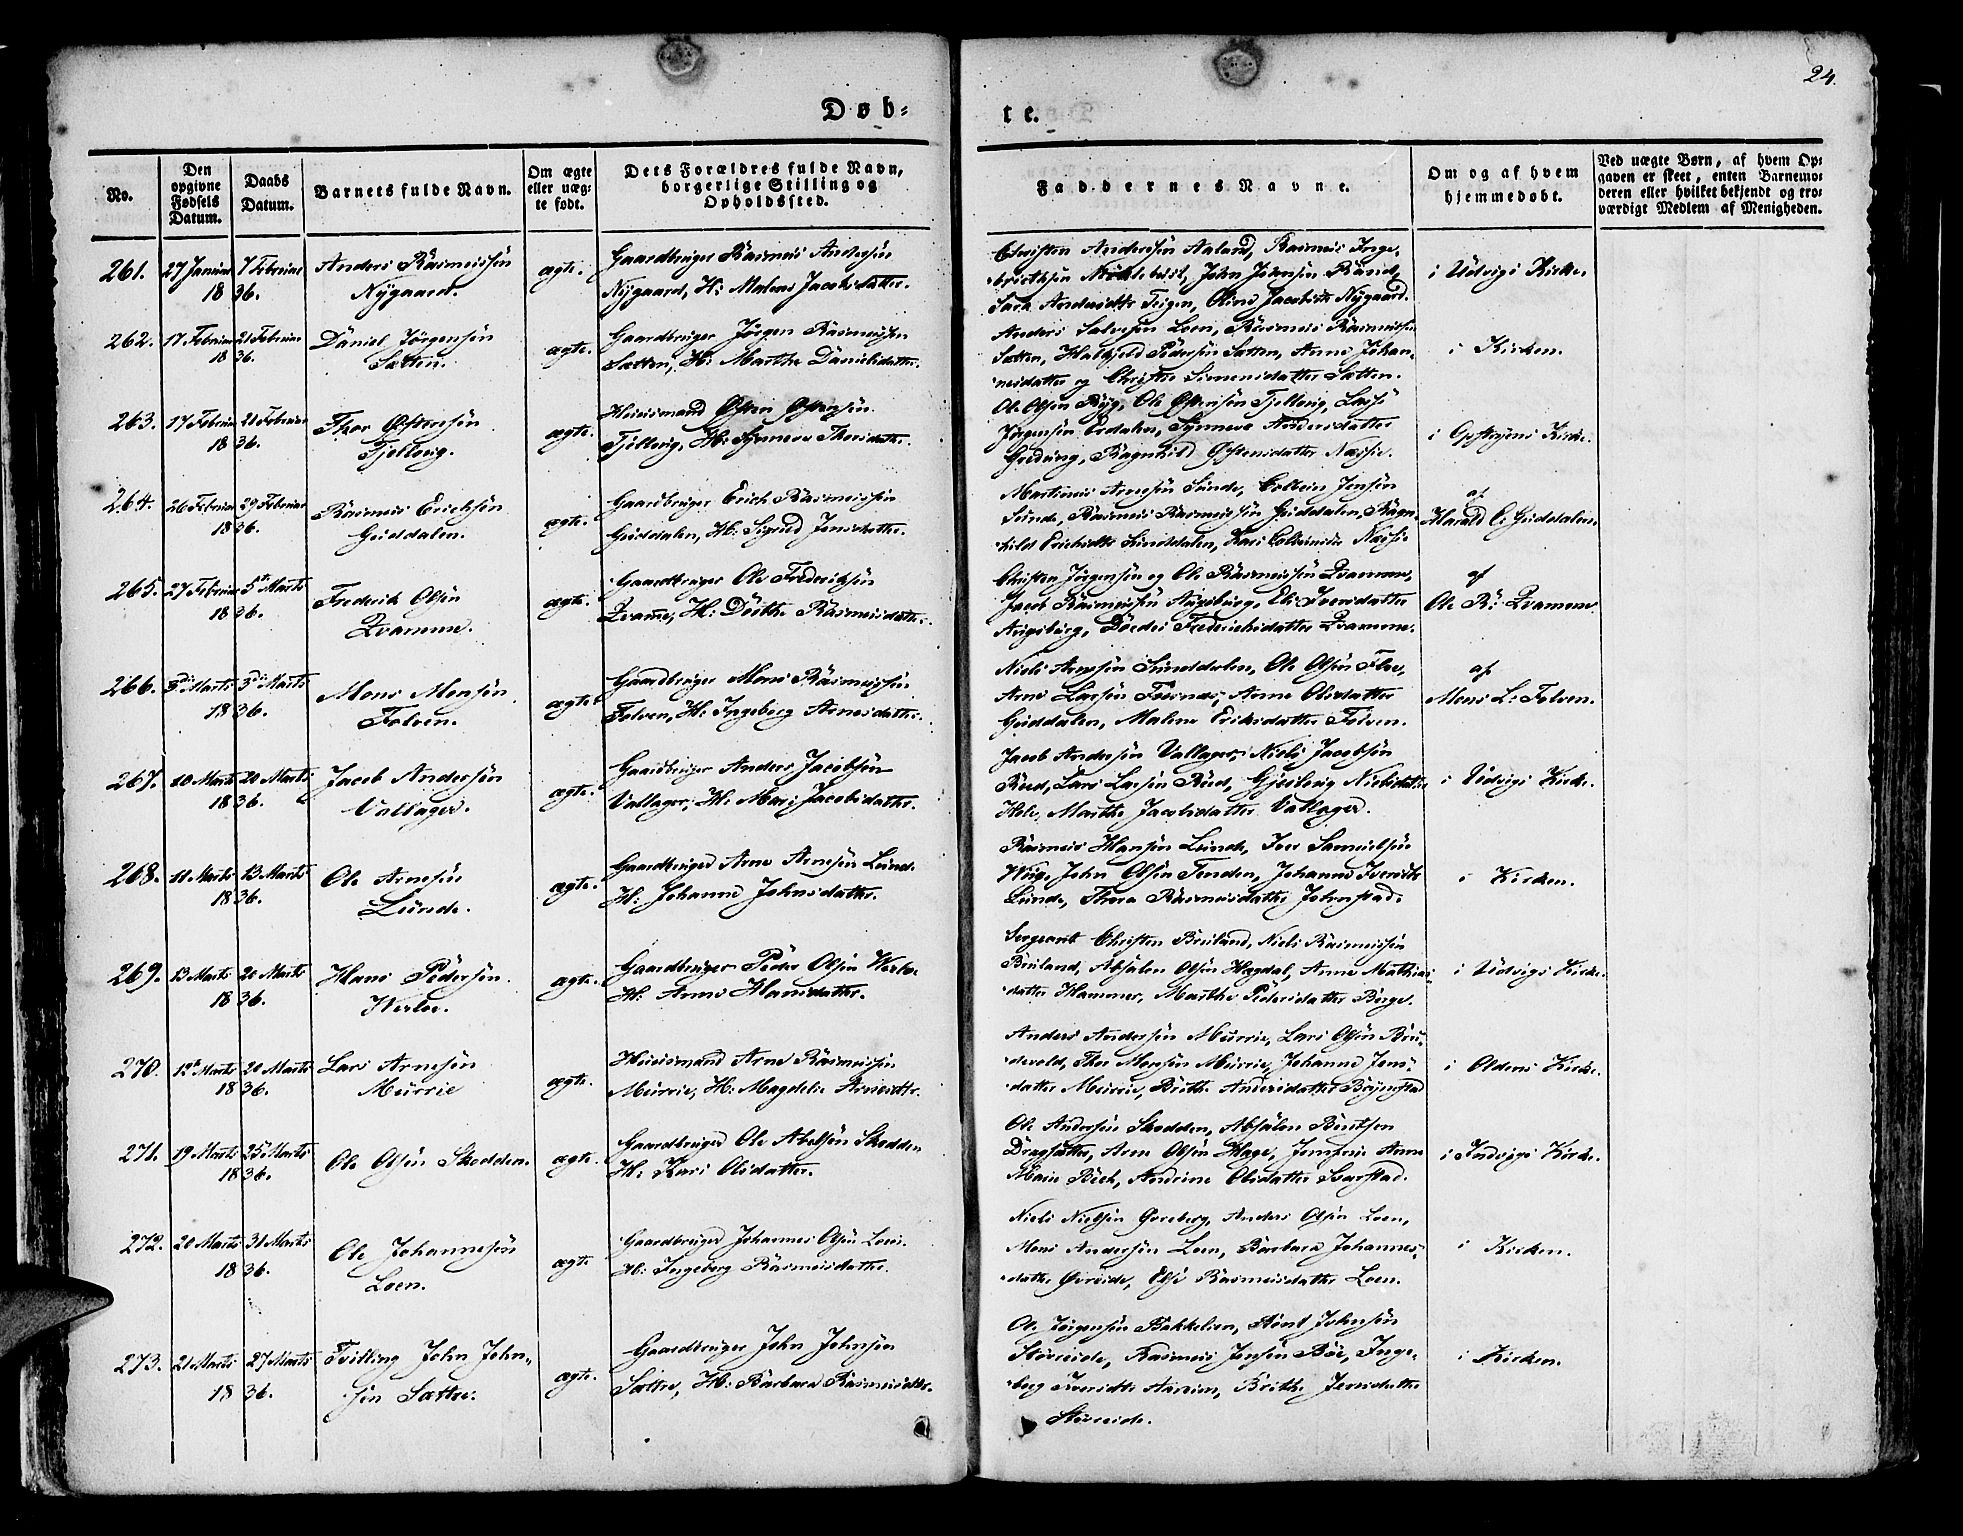 24.
Døb=
te.
No.
Den opgivne Fødsels Datum.
Daabs Datum.
Barnets fulde Navn.
Om ægte eller uæg= te født.
Dets Forældres fulde Navn, borgerlige Stilling og Opholdssted.
Faddernes Navne.
Om og af hvem hjemmedøbt.
Ved uægte Børn, af hvem Op= gaven er skeet, enten Barnemo= deren eller hvilket bekjendt og tro= værdigt Medlem af Menigheden.
261. 27 Januar 7 Februar
1836.
Anders Rasmussøn
Nygaard.
ægte.
Gaardbruger Rasmus Andersøn
Nygaard, H: Malene Jacobsdatter.
Christen Andersøn Aaland, Rasmus Inge-
brethsøn Myklebust, John Johnsøn
Sara Andersdtr Teigen, Oline Jacobsdtr Nygaard.
i Udvigs Kirke.
262. 17 Februar 21 Februar
1836.
Daniel Jørgensøn
Sætten.
ægte.
Gaardbruger Jørgen Rasmussøn
Sætten, H: Marthe Danielsdatter.
Anders Salvesøn Loen, Rasmus Rasmussøn
Sætten, Halkjeld Pedersøn Sætten, Anne Johan-
nesdatter og Christie Simensdatter Sætten.
i Kirken.
263. 17 Februar 21 Februar
1836.
Thor Østensøn
Tjellaug.
ægte.
Huusmand Østen Østensøn
Tjellaug, H: Synneve Thorsdatter.
Ole Olsøn Ryg, Ole Østensøn Tjellaug, Lars
Jørgensøn Erdalen, Synneve Andersdatter
Grøding, Ragnhild Østensdatter Næssie.
i Opstryens Kirke.
264. 26 Februar 29 Februar
1836.
Rasmus Erichsøn
Guddalen.
ægte.
Gaardbruger Erich Rasmussøn
Guddalen, H: Sigrid Jensdatter.
Martinus Arnesøn Sunde, Colbein Jensøn
Sunde, Rasmus Rasmussøn Guddalen, Ragn-
hild Erichsdtr Sunddalen, Kari Colbeinsdtr Næssie
af
Harald E: Guddalen.
265. 27 Februar 5te Marts
1836.
Frederik Olsøn
Qvamme.
ægte.
Gaardbruger Ole Frederiksøn
Qvamme, H: Dorthe Rasmusdatter.
Christen Jørgensøn og Ole Rasmussøn Qvamme,
Jacob Rasmussøn Augsburg, Eli Iversdatter
Augsburg, Dordei Frederichsdatter Qvamme.
af
Ole R: Qvamme.
266. 3die Marts 5te Marts
1836.
Mons Monsøn
Folven.
ægte.
Gaardbruger Mons Rasmussøn
Folven, H: Ingeborg Arnesdatter.
Niels Arnesøn Sunddalen, Ole Olsøn Floe,
Arne Larsøn Fosnæs, Anne Olsdatter
Guddalen, Malene Eriksdatter Folven.
af
Mons L: Folven.
267. 10 Marts 20 Marts
1836.
Jacob Andersøn
Vallager.
ægte.
Gaardbruger Anders Jacobsøn
Vallager, H: Mari Jacobsdatter.
Jacob Andersøn Vallager, Niels Jacobsøn
Reed, Lars Larsøn Reed, Gjertrug Nielsdatter
Hole, Marthe Jacobsdatter Vallager.
i Udvigs Kirke.
268. 11 Marts 13 Marts
1836.
Ole Arnesøn
Lunde.
ægte.
Gaardbruger Arne Arnesøn Lunde
H: Johanne Johnsdatter.
Rasmus Hansøn Lunde, Iver Samuelsøn
Wiig, John Olsøn Tenden, Johanne Iversdtr
Lunde, Thora Rasmusdatter Johnstad.
i Kirken.
269. 13 Marts 20 Marts
1836.
Hans Pedersøn
Werloe.
ægte.
Gaardbruger Peder Olsøn Werloe
H: Anne Hansdatter.
Sergeant Christen Breiland, Niels Rasmussøn
Breiland, Absalon Olsøn Hægdal, Anne Mathias-
datter Hammer, Marthe Pedersdatter Berge.
i Udvigs Kirke.
270. 19de Marts 20 Marts
1836.
Lars Arnesøn
Murrie
ægte.
Huusmand Arne Rasmussøn
Murrie, H: Magdelie Arnesdtr.
Anders Andersøn Murrie, Lars Olsøn Bru-
devold, Thor Monsøn Murrie, Johanne Jens-
datter Murrie, Brithe Andersdatter Bryenstad
i Oldens Kirke.
271. 19 Marts 25 Marts
1836.
Ole Olsøn Skodden.
ægte.
Gaardbruger Ole Abelsøn Skodden
H: Kari Olsdatter.
Ole Andersøn Skodden, Absalon Bentsen
Dragsætter, Arne Olsøn Hage, Jomfrue Anne
Marie Bech, Andrine Olsdatter Svarstad.
i Indvigs Kirke.
272. 20 Marts 31 Marts
1836.
Ole Johannesøn
Loen.
ægte
Gaardbruger Johannes Olsøn Loen.
H: Ingeborg Rasmusdatter.
Niels Nielsøn Greberg, Anders Olsøn Loen,
Mons Andersøn Loen, Barbara Johannes-
datter Øvreide, Else Rasmusdatter Loen.
i Kirken.
273. 21 Marts 27 Marts
1836.
Tvilling John John-
søn Sættre.
ægte.
Gaardbruger John Johnsøn
Sættre, H: Barbara Rasmusdtr.
Ole Jørgensøn Bakkelien, Knut Johnsøn
Storeide, Rasmus Jensøn Bøe, Inge-
borg Iversdtr Aarnes, Brithe Jensdatter
Storeide.
i Kirken.